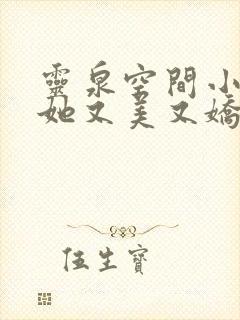 靈泉空間小
她又美又嬌
伍生寶